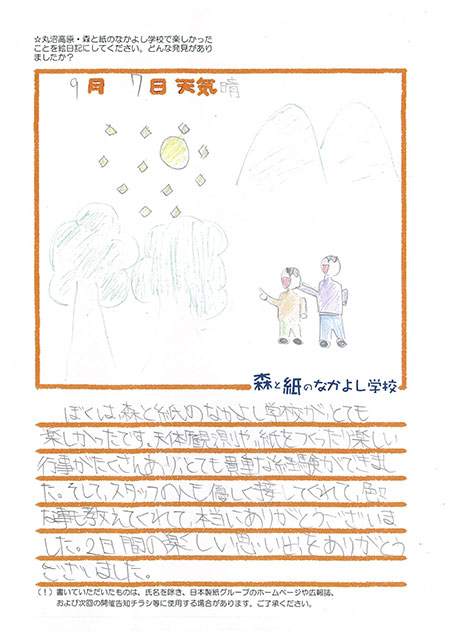 ☆丸沼高原・森と紙のなかよし学校で楽しかった
ことを絵日記にしてください。どんな発見があり
ましたか？
9月 7日 天気 晴
森と紙のなかよし学校
ぼくは、森と紙のなかよし学校がとても
楽しかったです。天体観測や、紙をつくったり楽しい
行事がたくさんあり、とても貴重な経験ができまし
た。そして、スタッフの人も優しく接してくれて、色々
な事も教えてくれて、本当にありがとうございま
した。2日間の楽しい思い出をありがとう
ございました。
（！）書いていただいたものは、氏名を除き、日本製紙グループのホームページや広報誌、
および次回の開催告知チラシ等に使用する場合があります。ご了承ください。